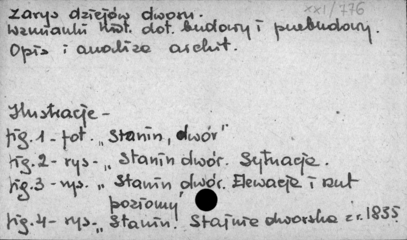 XXI/776
Zarys dziejów dworu.
Wzmianki hist. dot. budowy i przebudowy.
Opis i analiza archit.
Ilustracje -
fig. 1 - fot. „Stanin, dwór"
fig. 2 - rys - „Stanin dwór. Sytuacja.
fig. 3 - rys. „Stanin dwór. Elewacja i rzut
poziomy"
fig. 4 - rys - „Stanin. Stajnia dworska z r. 1835